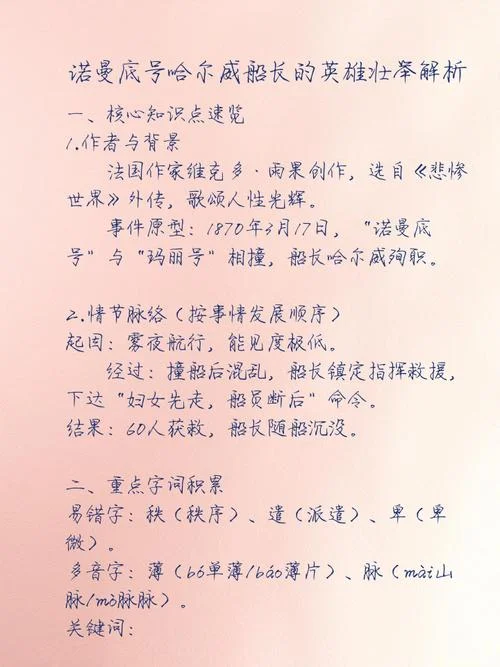 诺曼底号哈尔威船长的英雄壮举解析
一、核心知识点速览
1.作者与背景
法国作家维克多·雨果创作，选自《悲惨
世界》外传，歌颂人性光辉。
事件原型：1870年3月17日，“诺曼底
号”与“玛丽号”相撞，船长哈尔威殉职。
2.情节脉络（按事情发展顺序）
起因：雾夜航行，能见度极低。
经过：撞船后混乱，船长镇定指挥救援，
下达“妇女先走，船员断后”命令。
结果：60人获救，船长随船沉没。
二、重点字词积累
易错字：秩（秩序）、遣（派遣）、卑（卑
微）。
多音字：薄（bó单薄/báo薄片）、脉（mài山
脉/mò脉脉）。
关键词：